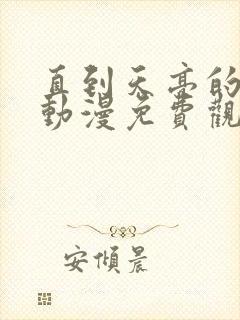 直到天亮的
動漫免費觀
安傾晨